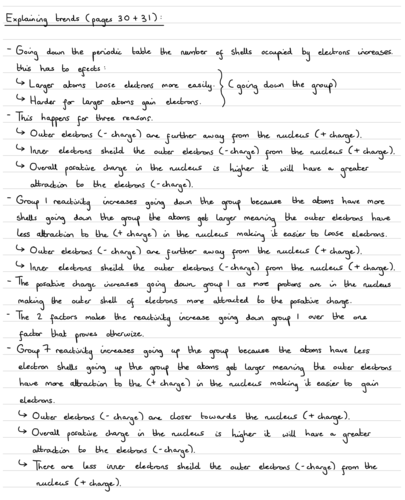 Explaining trends (pages 30 + 31):
- Going down the periodic table the number of shells occupied by electrons increases.
this has to efects:
↳ Larger atoms loose electrons more easily.
↳ Harder for larger atoms gain electrons.
} (going down the group)
- This happens for three reasons.
↳ Outer electrons (- charge) are further away from the nucleus (+ charge).
↳ Inner electrons sheild the outer electrons (-charge) from the nucleus (+ charge).
↳ Overall posative charge in the nucleus is higher it will have a greater
attraction to the electrons (-charge).
- Group 1 reactivity increases going down the group because the atoms have more
shells going down the group the atoms get larger meaning the outer electrons have
less attraction to the (+ charge) in the nucleus making it easier to loose electrons.
↳ Outer electrons (- charge) are further away from the nucleus (+ charge).
↳ Inner electrons sheild the outer electrons (-charge) from the nucleus (+ charge).
- The posative charge increases going down group 1 as more protons are in the nucleus
making the outer shell of electrons more attracted to the posative charge.
- The 2 factors make the reactivity increase going down group 1 over the one
factor that proves otherwize.
- Group 7 reactivity increases going up the group because the atoms have less
electron shells going up the group the atoms get larger meaning the outer electrons
have more attraction to the (+ charge) in the nucleus making it easier to gain
electrons.
↳ Outer electrons (- charge) are closer towards the nucleus (+ charge).
↳ Overall posative charge in the nucleus is higher it will have a greater
attraction to the electrons (-charge).
↳ There are less inner electrons sheild the outer electrons (-charge) from the
nucleus (+ charge).